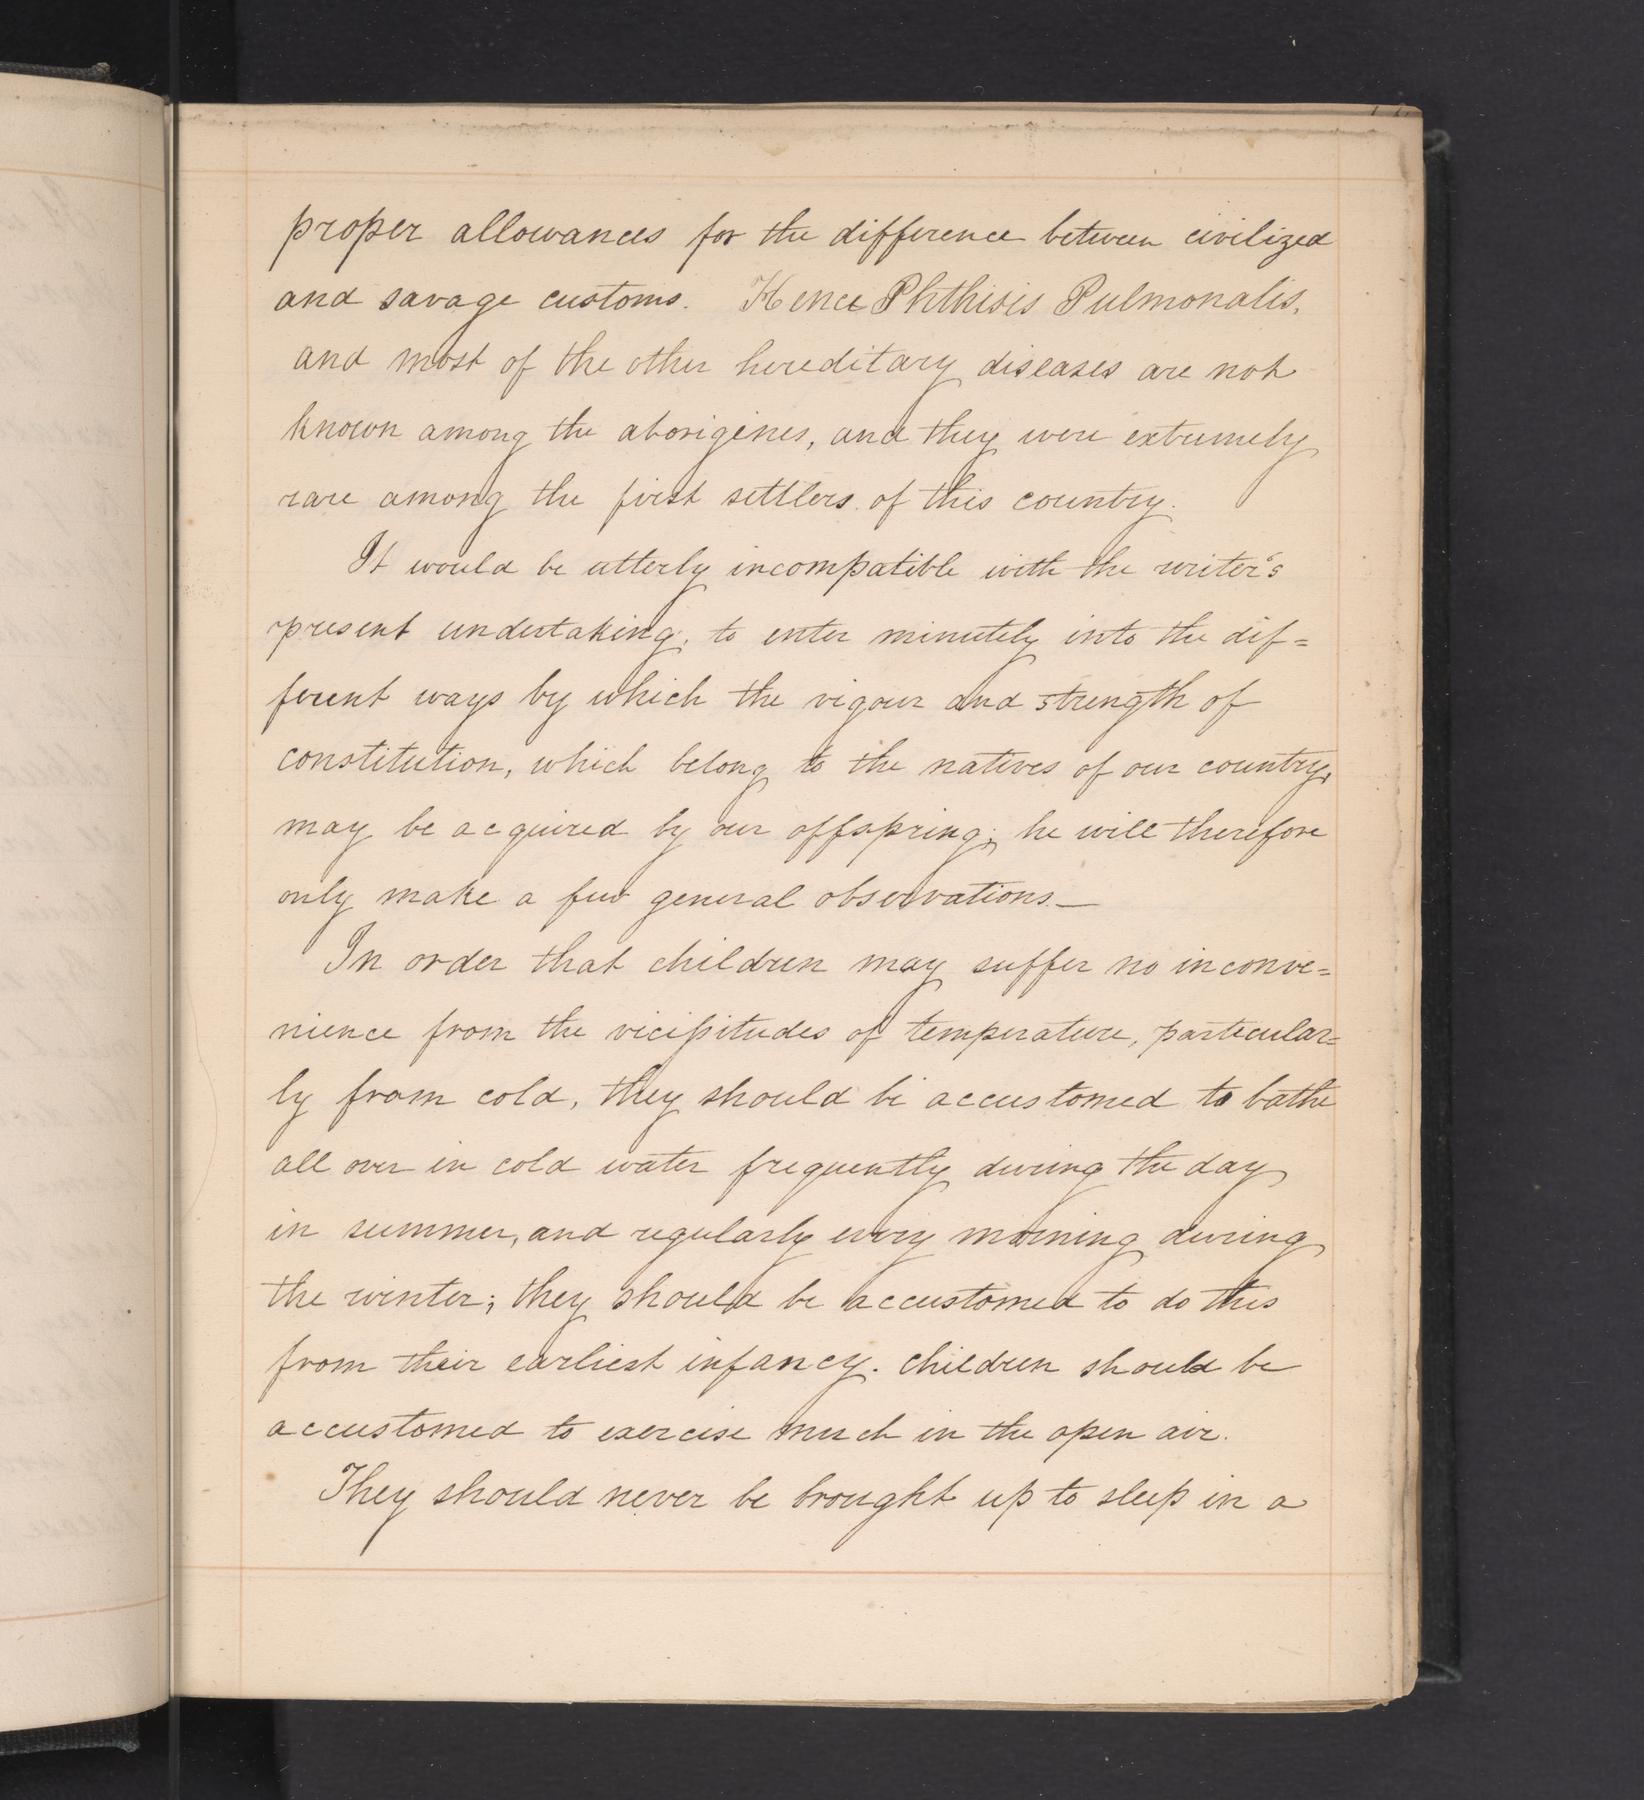 proper allowances for the difference between civilized
and savage customs. Hence Phthisis Pulmonalis,
and most of the other hereditary diseases are not
known among the aborigines, and they were extremely
rare among the first settlers of this country.
It would be utterly incompatible with the writer's
present undertaking, to enter minutely into the dif=
ferent ways by which the vigour and strength of
constitution, which belong to the natives of our country,
may be acquired by our offspring; he will therefore
only make a few general observations.—
In order that children may suffer no inconve=
nience from the vicissitudes of temperature, particular=
ly from cold, they should be accustomed to bathe
all over in cold water frequently during the day
in summer, and regularly every morning during
the winter; they should be accustomed to do this
from their earliest infancy. Children should be
accustomed to exercise much in the open air.
They should never be brought up to sleep in a